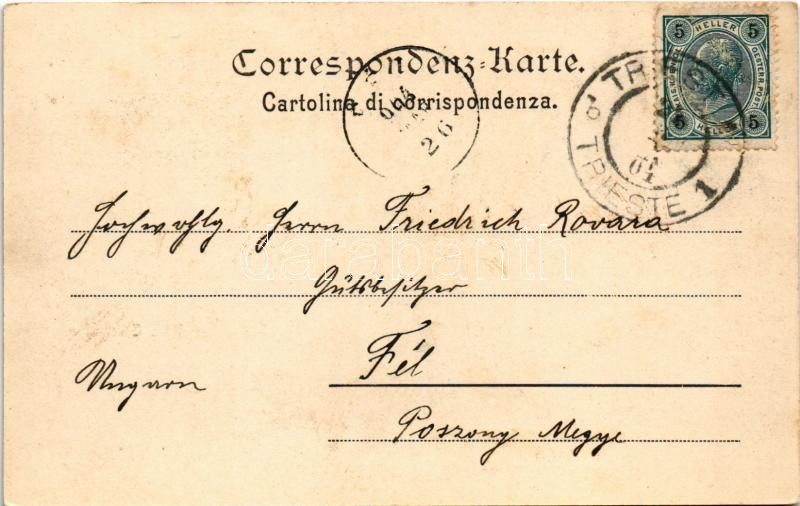 Correspondenz-Karte.
Cartolina di corrispondenza.
5 HELLER 5
OESTERR. POST.
5 HELLER 5
TRIEST
TRIESTE 1
26
Hochwohlg. Herrn Friedrich Rovara
Gutsbesitzer
Fél
Ungarn
Poszony Megye
darabanth